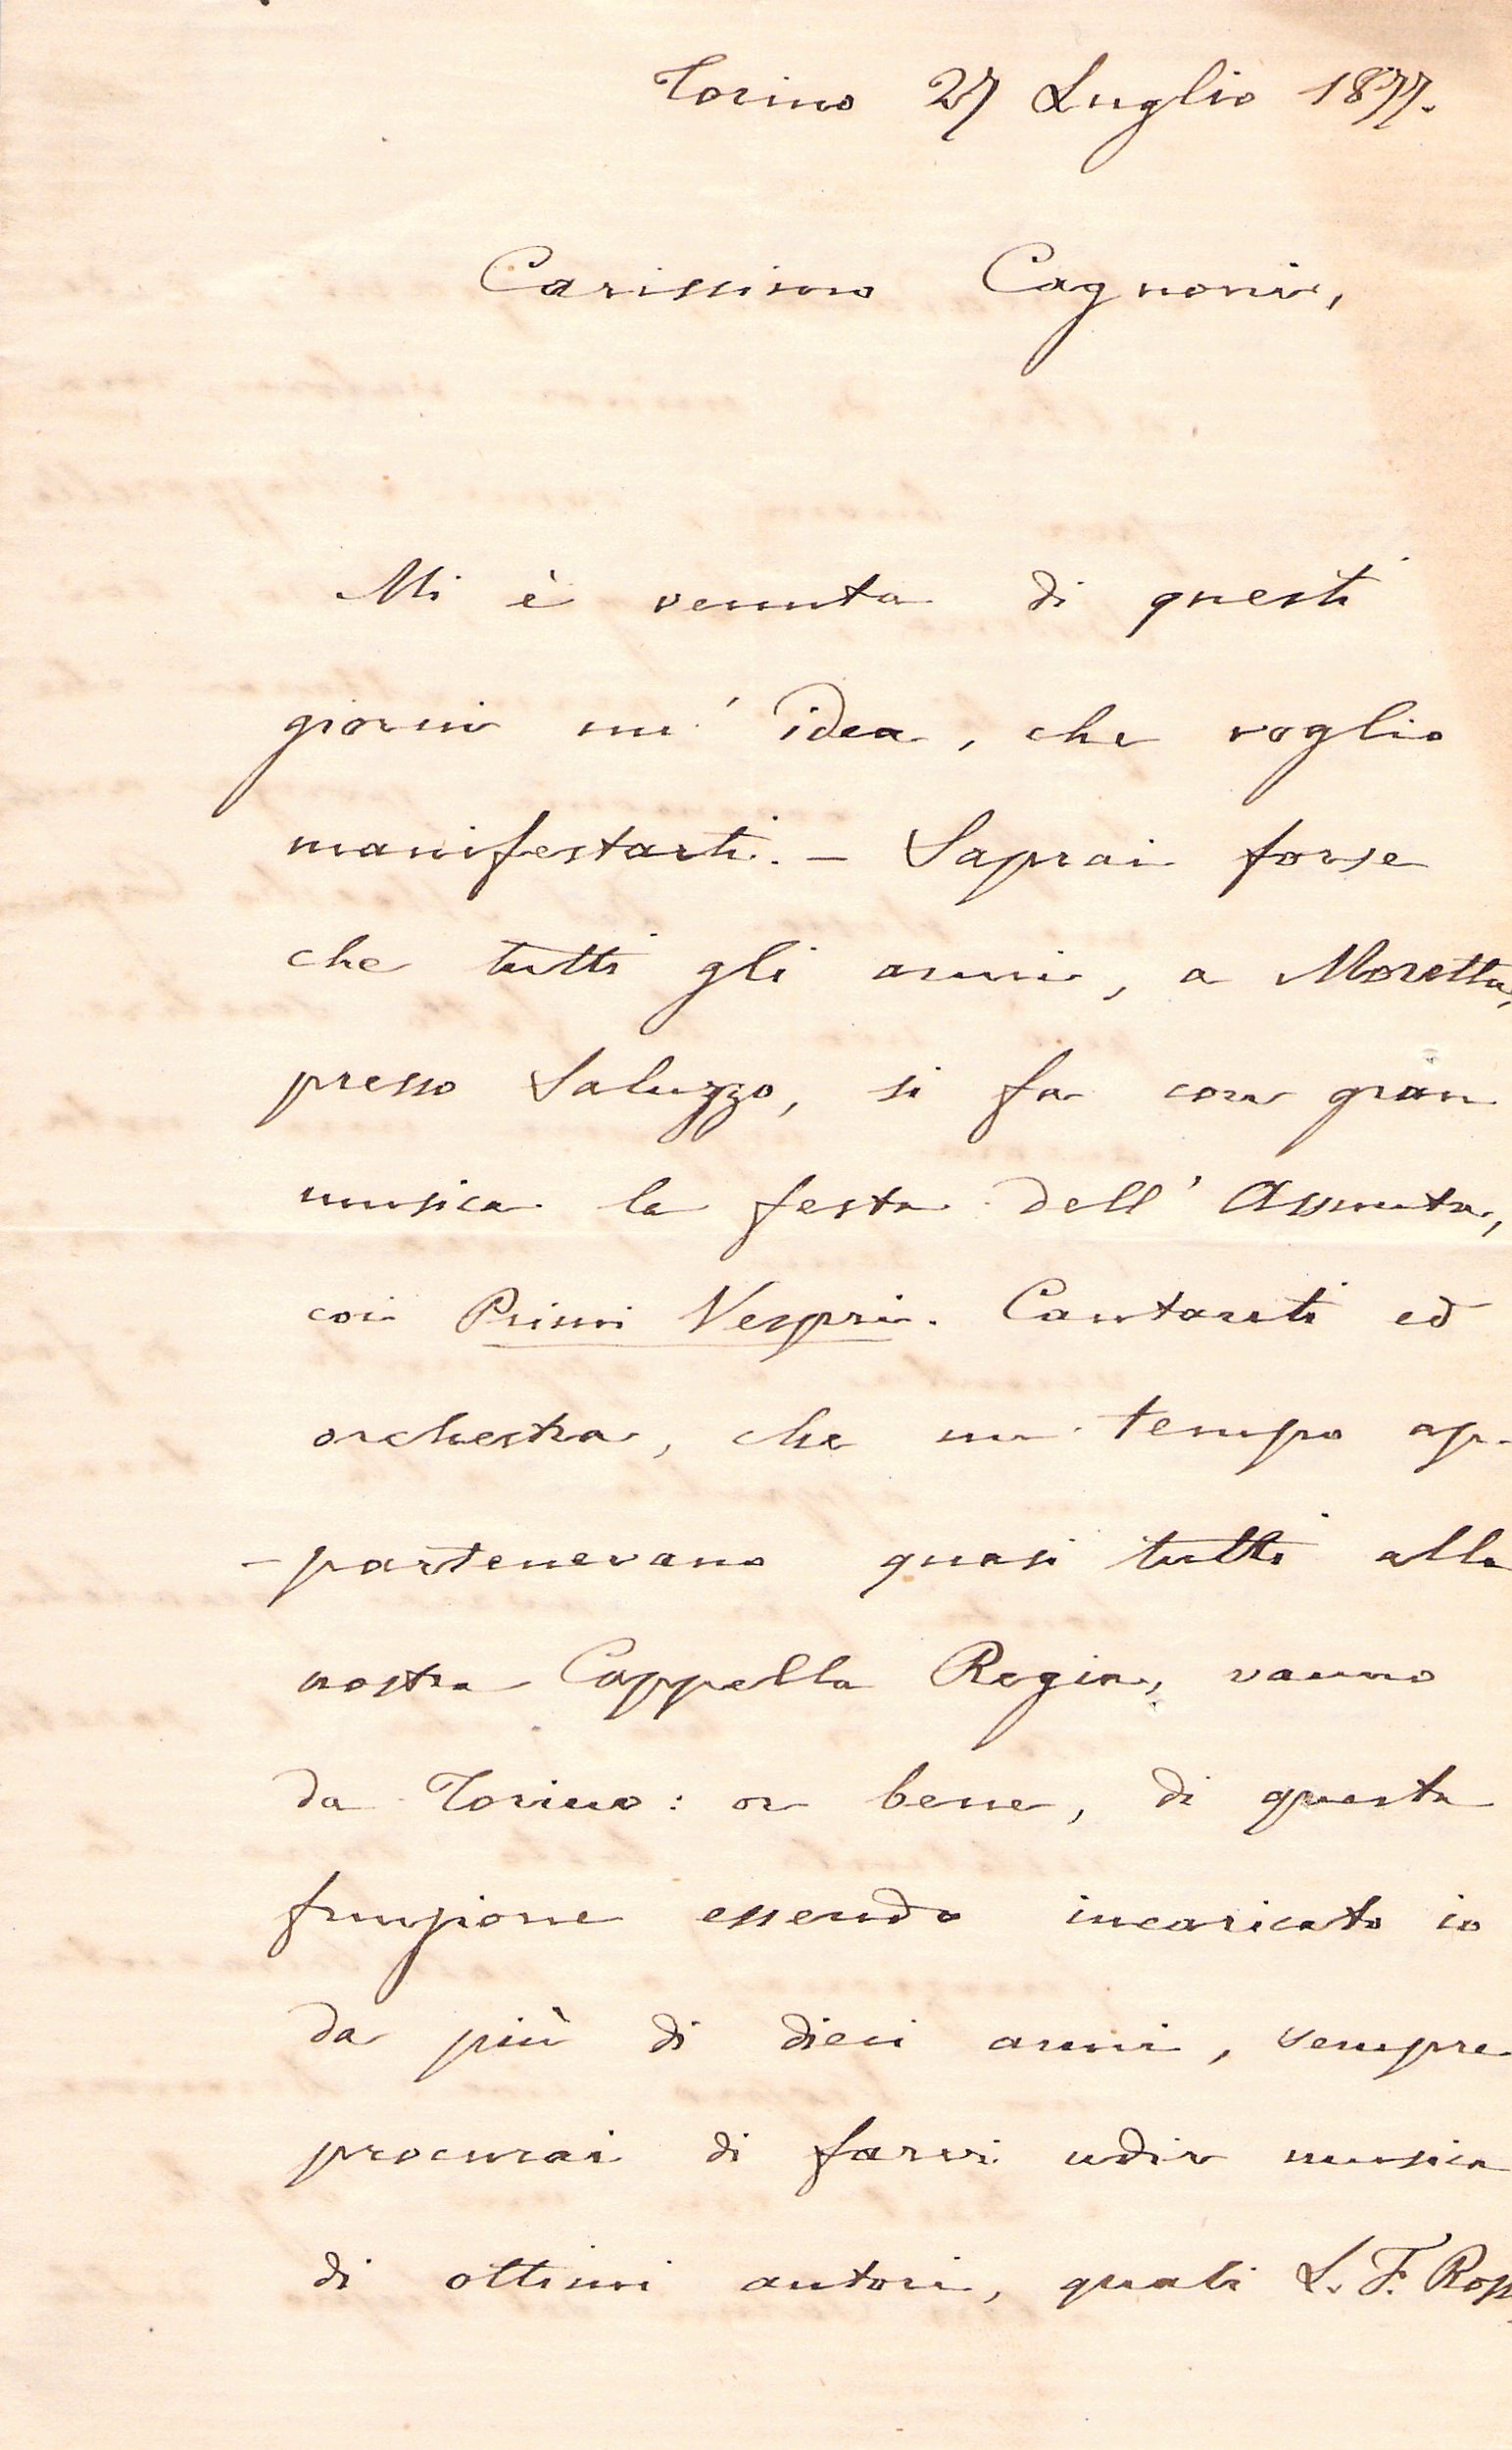 Torino 27 Luglio 1877.
Carissimo Cagnoni,
Mi è venuta di questi
giorni un' idea, che voglio
manifestarti. — Saprai forse
che tutti gli anni, a Moretta,
presso Saluzzo, si fa con gran
musica la festa dell' Assunta,
coi Primi Vespri. Cantanti ed
orchestra, che un tempo ap-
-partenevano quasi tutti alla
nostra Cappella Regia, vanno
da Torino: or bene, di questa
funzione essendo incaricato io
da più di dieci anni, sempre
procurai di farvi udir musica
di ottimi autori, quali L. F. Ross